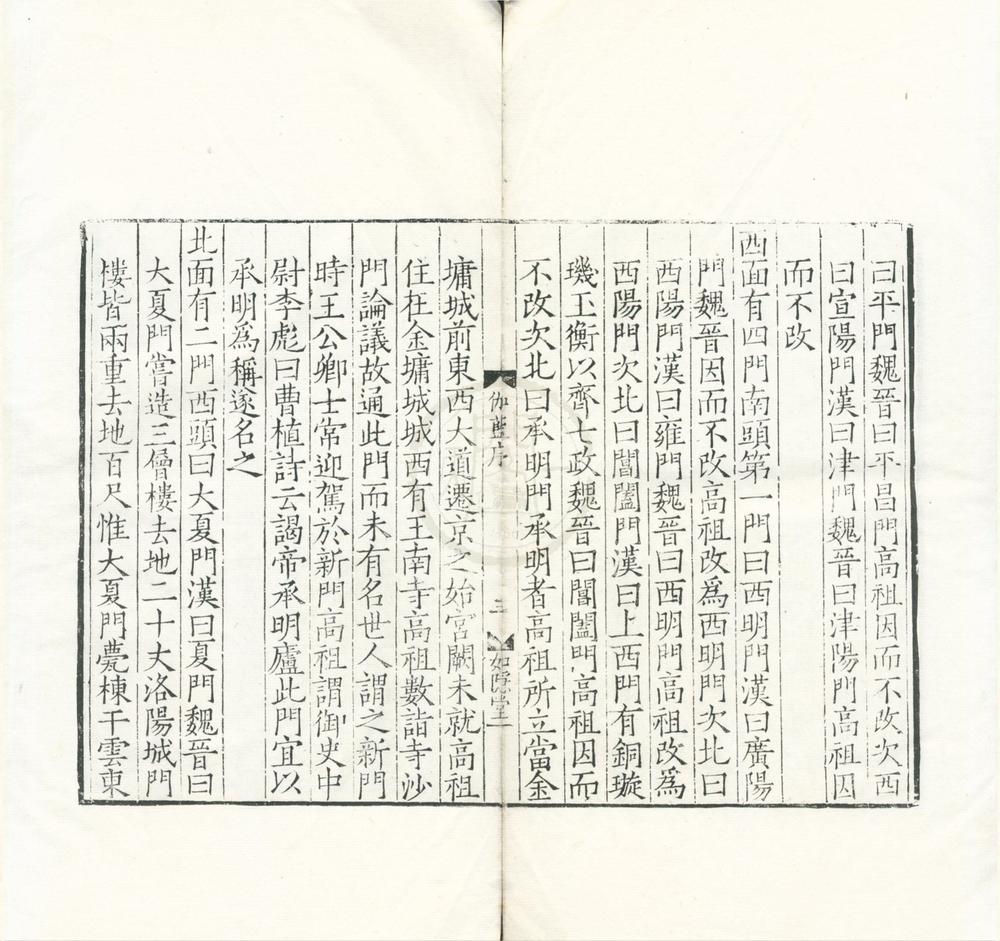 曰平門魏晉曰平昌門高祖因而不改次西
曰宣陽門漢曰津門魏晉曰津陽門高祖因
而不改
西面有四門南頭第一門曰西明門漢曰廣陽
門魏晉因而不改高祖改爲西明門次北曰
西陽門漢曰雍門魏晉曰西明門高祖改爲
西陽門次北曰閶闔門漢曰上西門有銅璇
璣玉衡以齊七政魏晉曰閶闔門高祖因而
不改次北曰承明門承明者高祖所立當金
伽藍序
三
如隱堂
墉城前東西大道遷京之始宮闕未就高祖
住在金墉城城西有王南寺高祖數詣寺沙
門論議故通此門而未有名世人謂之新門
時王公卿士常迎駕於新門高祖謂御史中
尉李彪曰曹植詩云謁帝承明廬此門宜以
承明爲稱遂名之
北面有二門西頭曰大夏門漢曰夏門魏晉曰
大夏門嘗造三層樓去地二十丈洛陽城門
樓皆兩重去地百尺惟大夏門甍棟干雲東